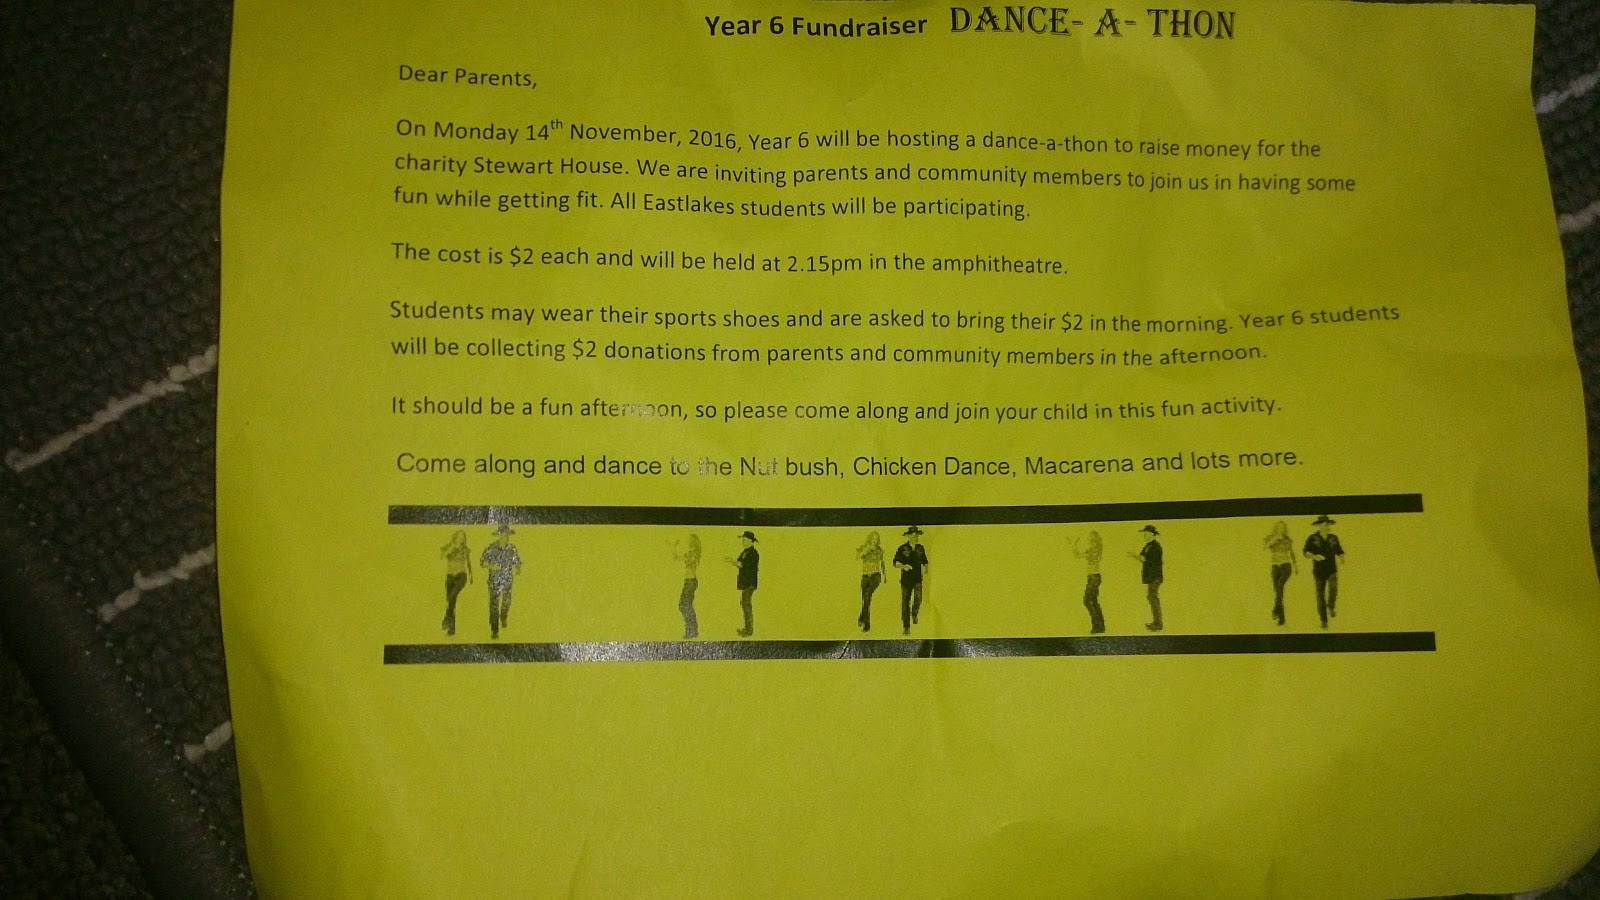 Year 6 Fundraiser DANCE- A- THON
Dear Parents,
On Monday 14th November, 2016, Year 6 will be hosting a dance-a-thon to raise money for the
charity Stewart House. We are inviting parents and community members to join us in having some
fun while getting fit. All Eastlakes students will be participating.
The cost is $2 each and will be held at 2.15pm in the amphitheatre.
Students may wear their sports shoes and are asked to bring their $2 in the morning. Year 6 students
will be collecting $2 donations from parents and community members in the afternoon.
It should be a fun afternoon, so please come along and join your child in this fun activity.
Come along and dance to the Nut bush, Chicken Dance, Macarena and lots more.